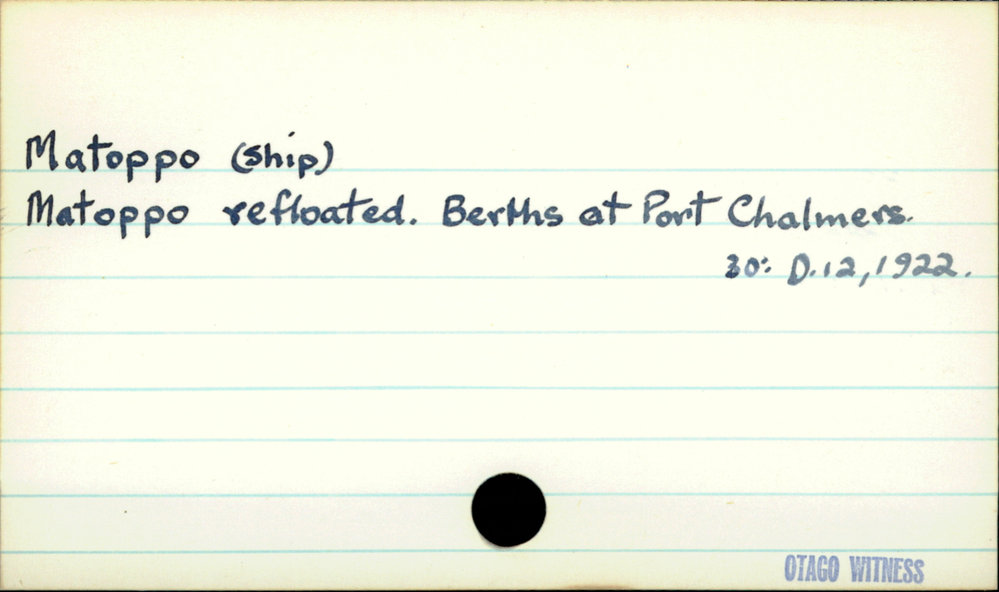 Matoppo (ship)
Matoppo refloated. Berths at Port Chalmers.
30: D.12, 1922.
OTAGO WITNESS